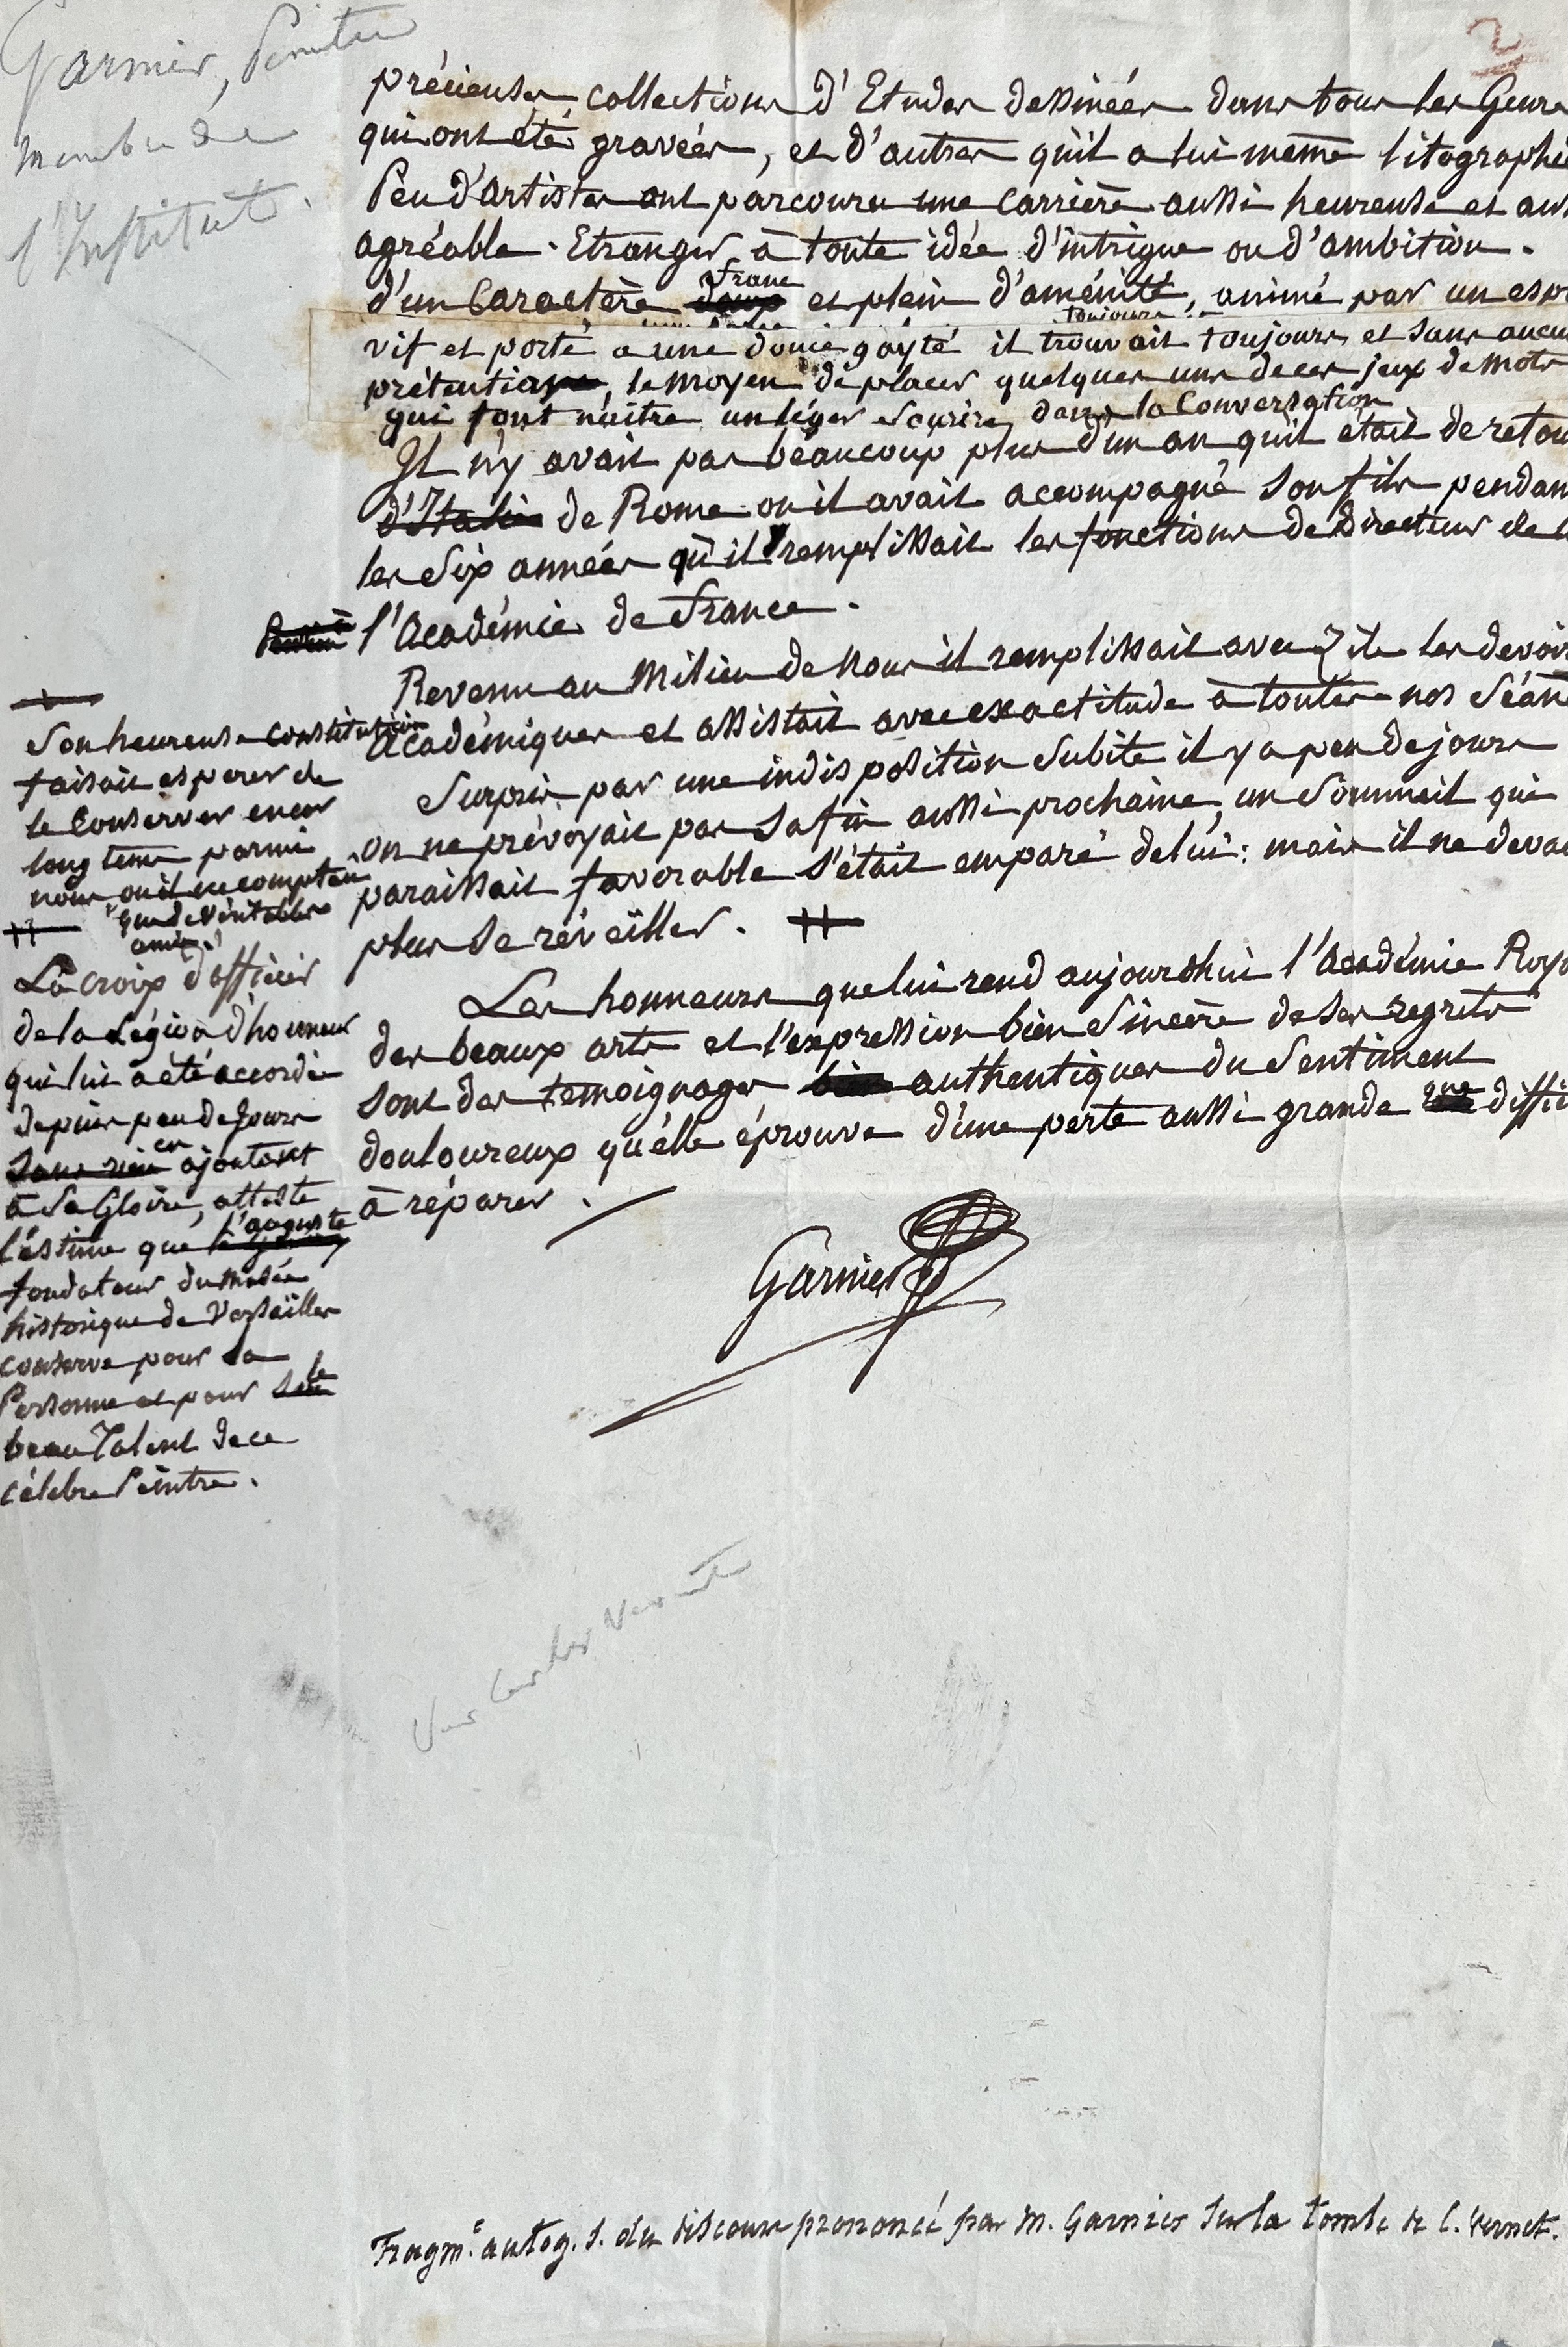 Garnier, Peintre
membre de
l'Institut.
2
précieuses collections d'Etudes dessinées dans tous les Genre
qui ont été gravées, et d'autres qu'il a lui même litographié
Peu d'artistes ont parcouru une carrière aussi heureuse et aus
agréable. Etranger à toute idée d'intrigue ou d'ambition.
franc
d'un Caractère doux et plein d'aménité, animé par un esp
toujours
vif et porté a une douce gayté il trouvait toujours et sans aucu
prétentions, le moyen de placer quelques uns de ces jeux de mots
qui font naitre un léger sourire dans la Conversation
Il n'y avait pas beaucoup plus d'un an qu'il était de retou
d'Italie de Rome où il avait accompagné son fils pendan
les six années qu'il remplissait les fonctions de Directeur de l
à l'Académie de France.
Revenu au Milieu de Nous il remplissait avec Zèle les devoir
académiques et assistait avec exactitude à toutes nos Séan
Surpris par une indisposition subite il y a peu de jours
on ne prévoyait pas sa fin aussi prochaine, un Sommeil qui
paraissait favorable s'était emparé de lui: mais il ne devai
plus se réveiller. ++
Les honneurs que lui rend aujourdhui l'Académie Roya
des beaux arts et l'expression bien Sincère de ses regrets
sont des temoignages bien authentiques du Sentiment
douloureux qu'elle éprouve d'une perte aussi grande que diffic
à réparer.
Garnier
+
Son heureuse constitution
faisait esperer de
le Conserver encor
long tems parmi
nous où il ne comptait
que de véritables
amis.
++
La croix d'officier
de la Légion d'honneur
qui lui a été accordée
depuis peu de jours
en
sans rien ajoutant
à sa Gloire, atteste
l'auguste
l'éstime que le
fondateur du Musée
historique de Versailles
conserve pour sa
le
Personne et pour son
beau Talent de ce
célèbre Peintre.
Sur Carles Vernet
Fragm.t autog. s. du discours prononcé par M. Garnier sur la tombe de C. Vernet.